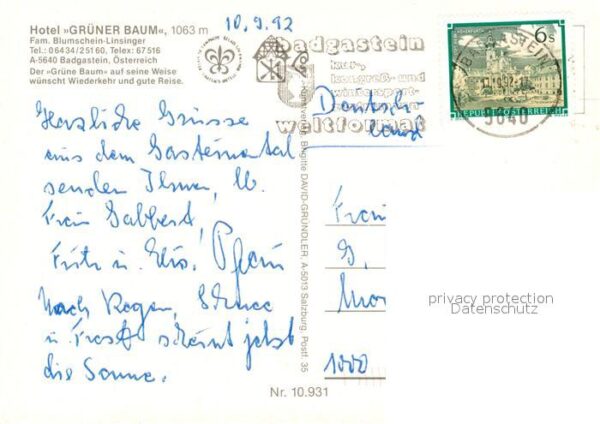 Hotel »GRÜNER BAUM«, 1063 m
Fam. Blumschein-Linsinger
Tel.: 06434/25160, Telex: 67516
A-5640 Badgastein, Österreich
Der »Grüne Baum« auf seine Weise
wünscht Wiederkehr und gute Reise.
10.9.92
badgastein
kur-,
kongreß- und
wintersport-
weltformat
6s
REPUBLIK ÖSTERREICH
BADGASTEIN
5640
Deutsch-
land
Herzliche Grüsse
aus dem Gasteinertal
senden Ihnen, lb.
Frau Gabbert,
Fritz u. Elis.
Nach Regen, Schnee
u Frost scheint jetzt
die Sonne.
Brigitte DAVID-GRÜNDLER, A-5013 Salzburg, Postf. 35
Frau
G.
1000
privacy protection
Datenschutz
Nr. 10.931